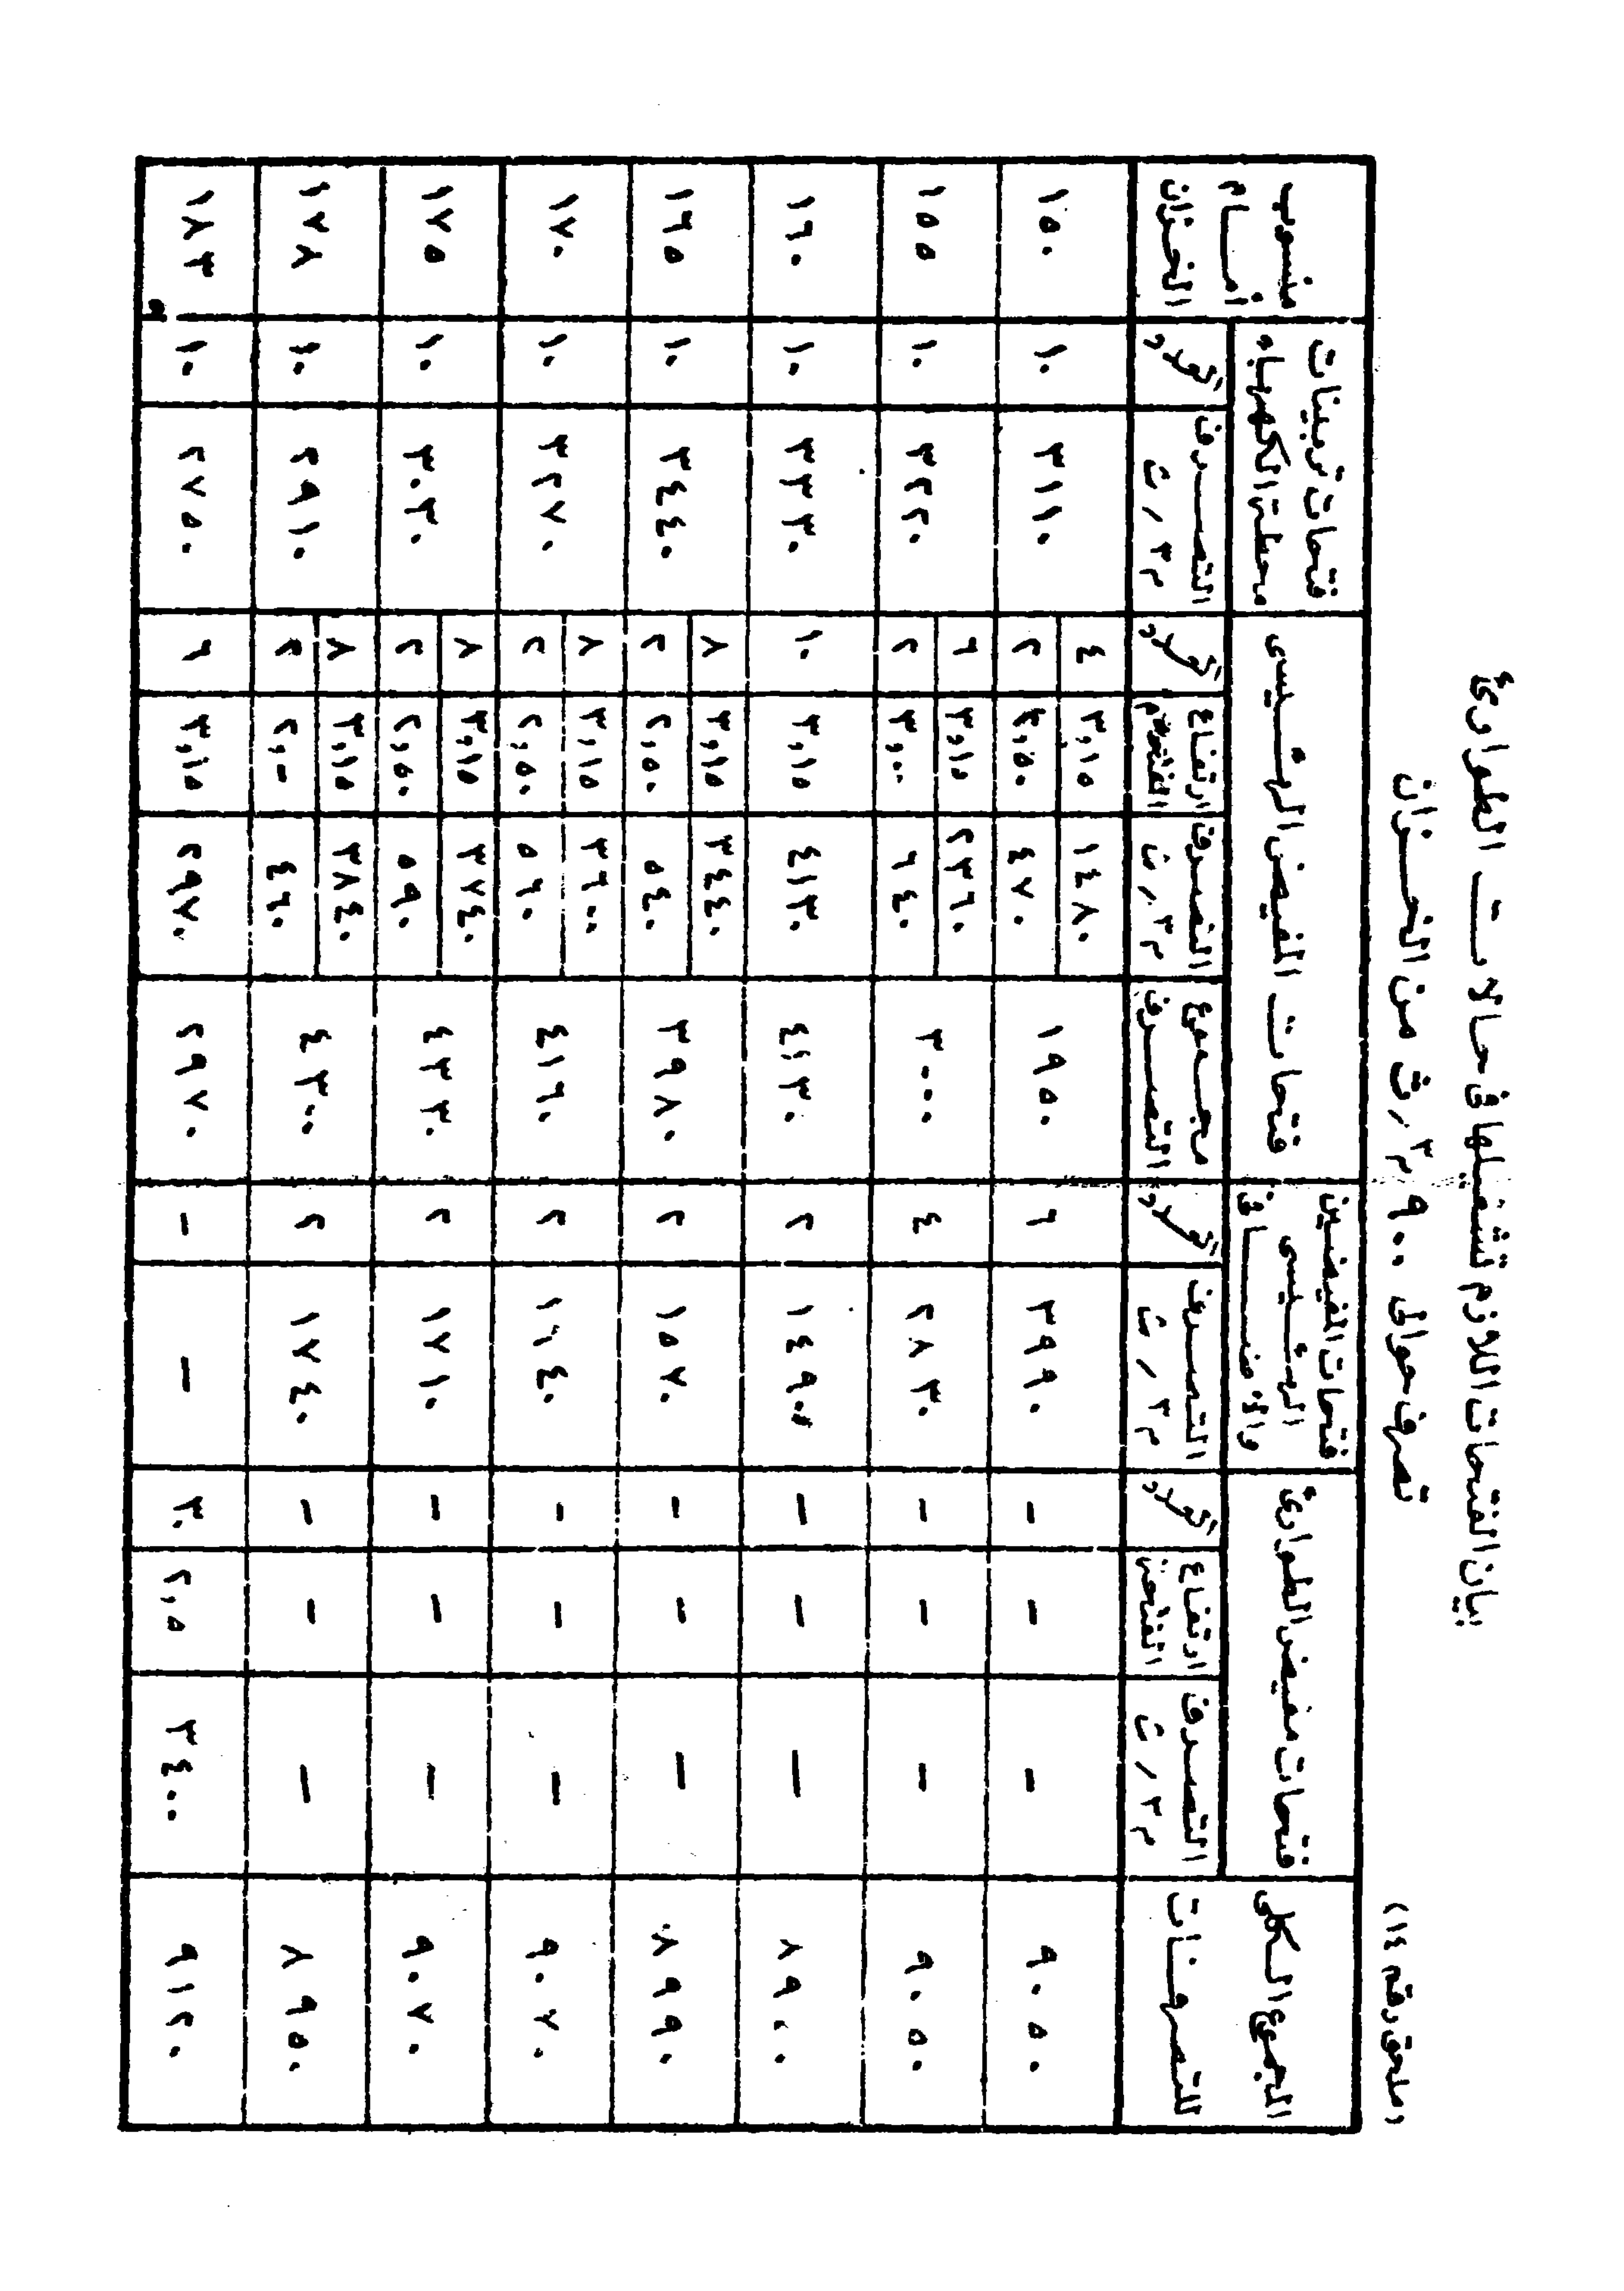 (ملحق رقم ١٤)
بيان الفتحات اللازم تشغيلها فى حالات الطوارئ
تصرف حوالى ٩٠٠ م٣ / ث من الخزان
منسوب أمام الخزان
فتحات تربينات محطة الكهرباء
فتحات المفيض الرئيسى
فتحات المفيضين الرئيسى والاضافى
فتحات مفيض الطوارئ
المجموع الكلى للتصرفات
العدد التصرف م٣ / ث العدد ارتفاع الفتحة التصرف م٣ / ث مجموع التصرف العدد التصرف م٣ / ث العدد ارتفاع الفتحة التصرف م٣ / ث
١٥٠ ١٠ ٣١١٠ ٤ ٣,١٥ ١٤٨٠ ١٩٥٠ ٦ ٣٩٩٠ - - - ٩٠٥٠
٢ ٢,٥٠ ٤٧٠
١٥٥ ١٠ ٣٢٢٠ ٦ ٣,١٥ ٢٣٦٠ ٣٠٠٠ ٤ ٢٨٣٠ - - - ٩٠٥٠
٢ ٣,٠٠ ٦٤٠
١٦٠ ١٠ ٣٣٣٠ ١٠ ٣,١٥ ٤١٣٠ ٤١٣٠ ٢ ١٤٩٠ - - - ٨٩٠٠
١٦٥ ١٠ ٣٤٤٠ ٨ ٣,١٥ ٣٤٤٠ ٣٩٨٠ ٢ ١٥٧٠ - - - ٨٩٩٠
٢ ٢,٥٠ ٥٤٠
١٧٠ ١٠ ٣٢٧٠ ٨ ٣,١٥ ٣٦٠٠ ٤١٦٠ ٢ ١٦٤٠ - - - ٩٠٧٠
٢ ٢,٥٠ ٥٦٠
١٧٥ ١٠ ٣٠٣٠ ٨ ٣,١٥ ٣٧٤٠ ٤٣٣٠ ٢ ١٧١٠ - - - ٩٠٧٠
٢ ٢,٥٠ ٥٩٠
١٧٨ ١٠ ٢٩١٠ ٨ ٣,١٥ ٣٨٤٠ ٤٣٠٠ ٢ ١٧٤٠ - - - ٨٩٥٠
٢ ٢,٠٠ ٤٦٠
١٨٣ ١٠ ٢٧٥٠ ٦ ٣,١٥ ٢٩٧٠ ٢٩٧٠ - - ٣٠ ٢,٥ ٣٤٠٠ ٩١٢٠